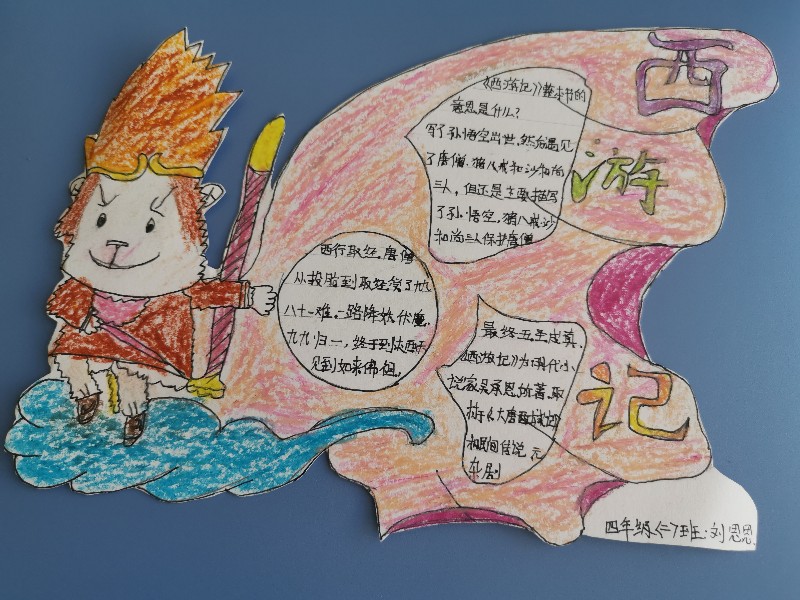 西
游
记
《西游记》整本书的
意思是什么?
写了孙悟空出世,然后遇见
了唐僧、猪八戒和沙和尚
三人,但还是主要描写
了孙悟空,猪八戒沙
和尚三人保护唐僧
西行取经。唐僧
从投胎到取经受了九九
八十一难。一路降妖伏魔,
九九归一,终于到达西天
见到如来佛祖。
最终五圣成真。
《西游记》为明代小
说家吴承恩所著。取
材于《大唐西域记》
和民间传说、元
杂剧
四年级(二)班:刘恩恩